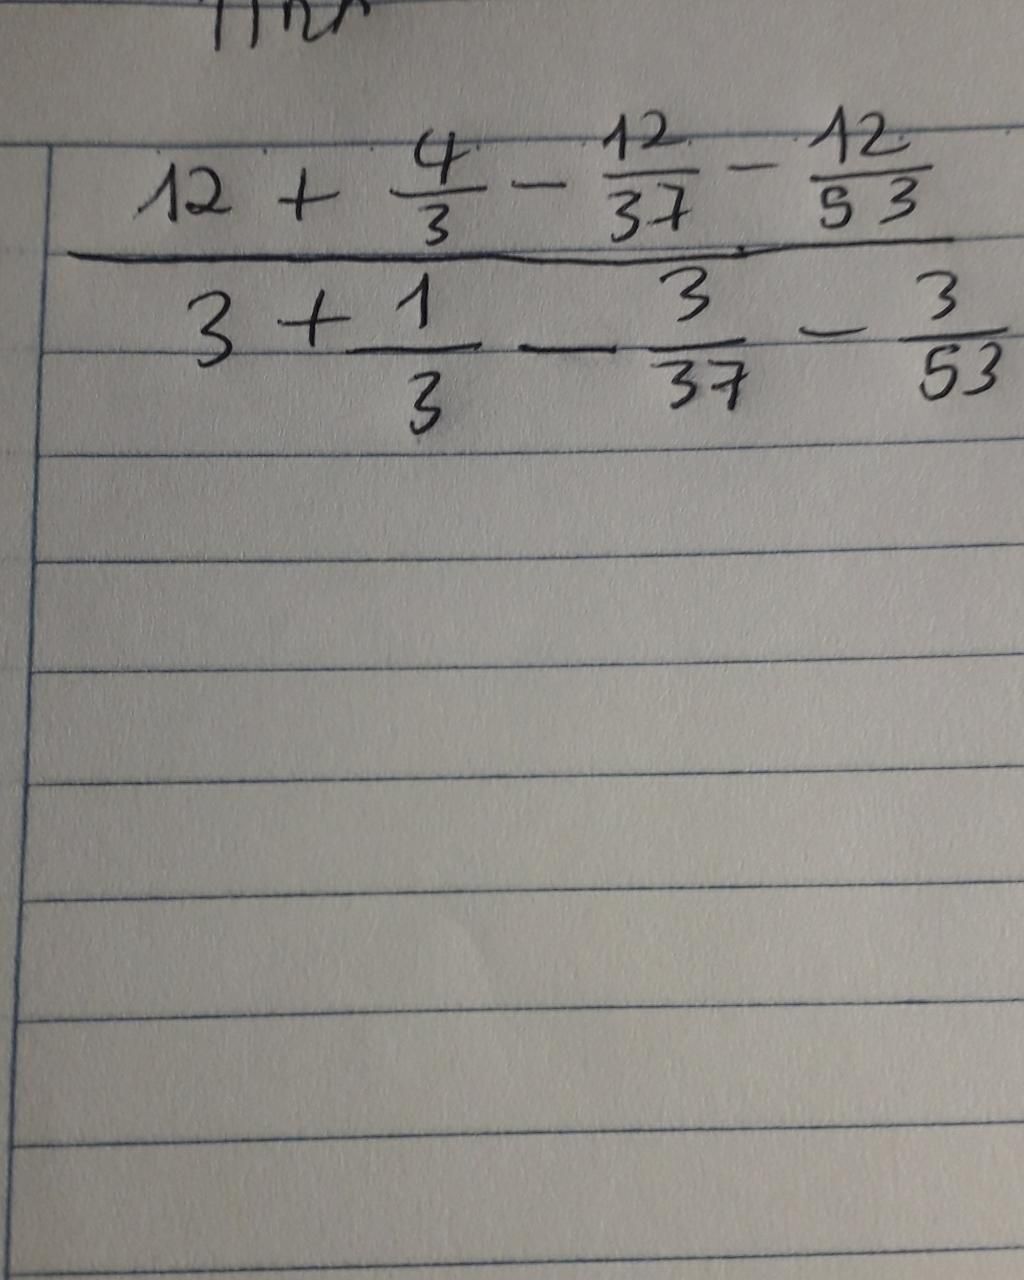 12 + 4/3 - 12/37 - 12/53
3 + 1/3 - 3/37 - 3/53